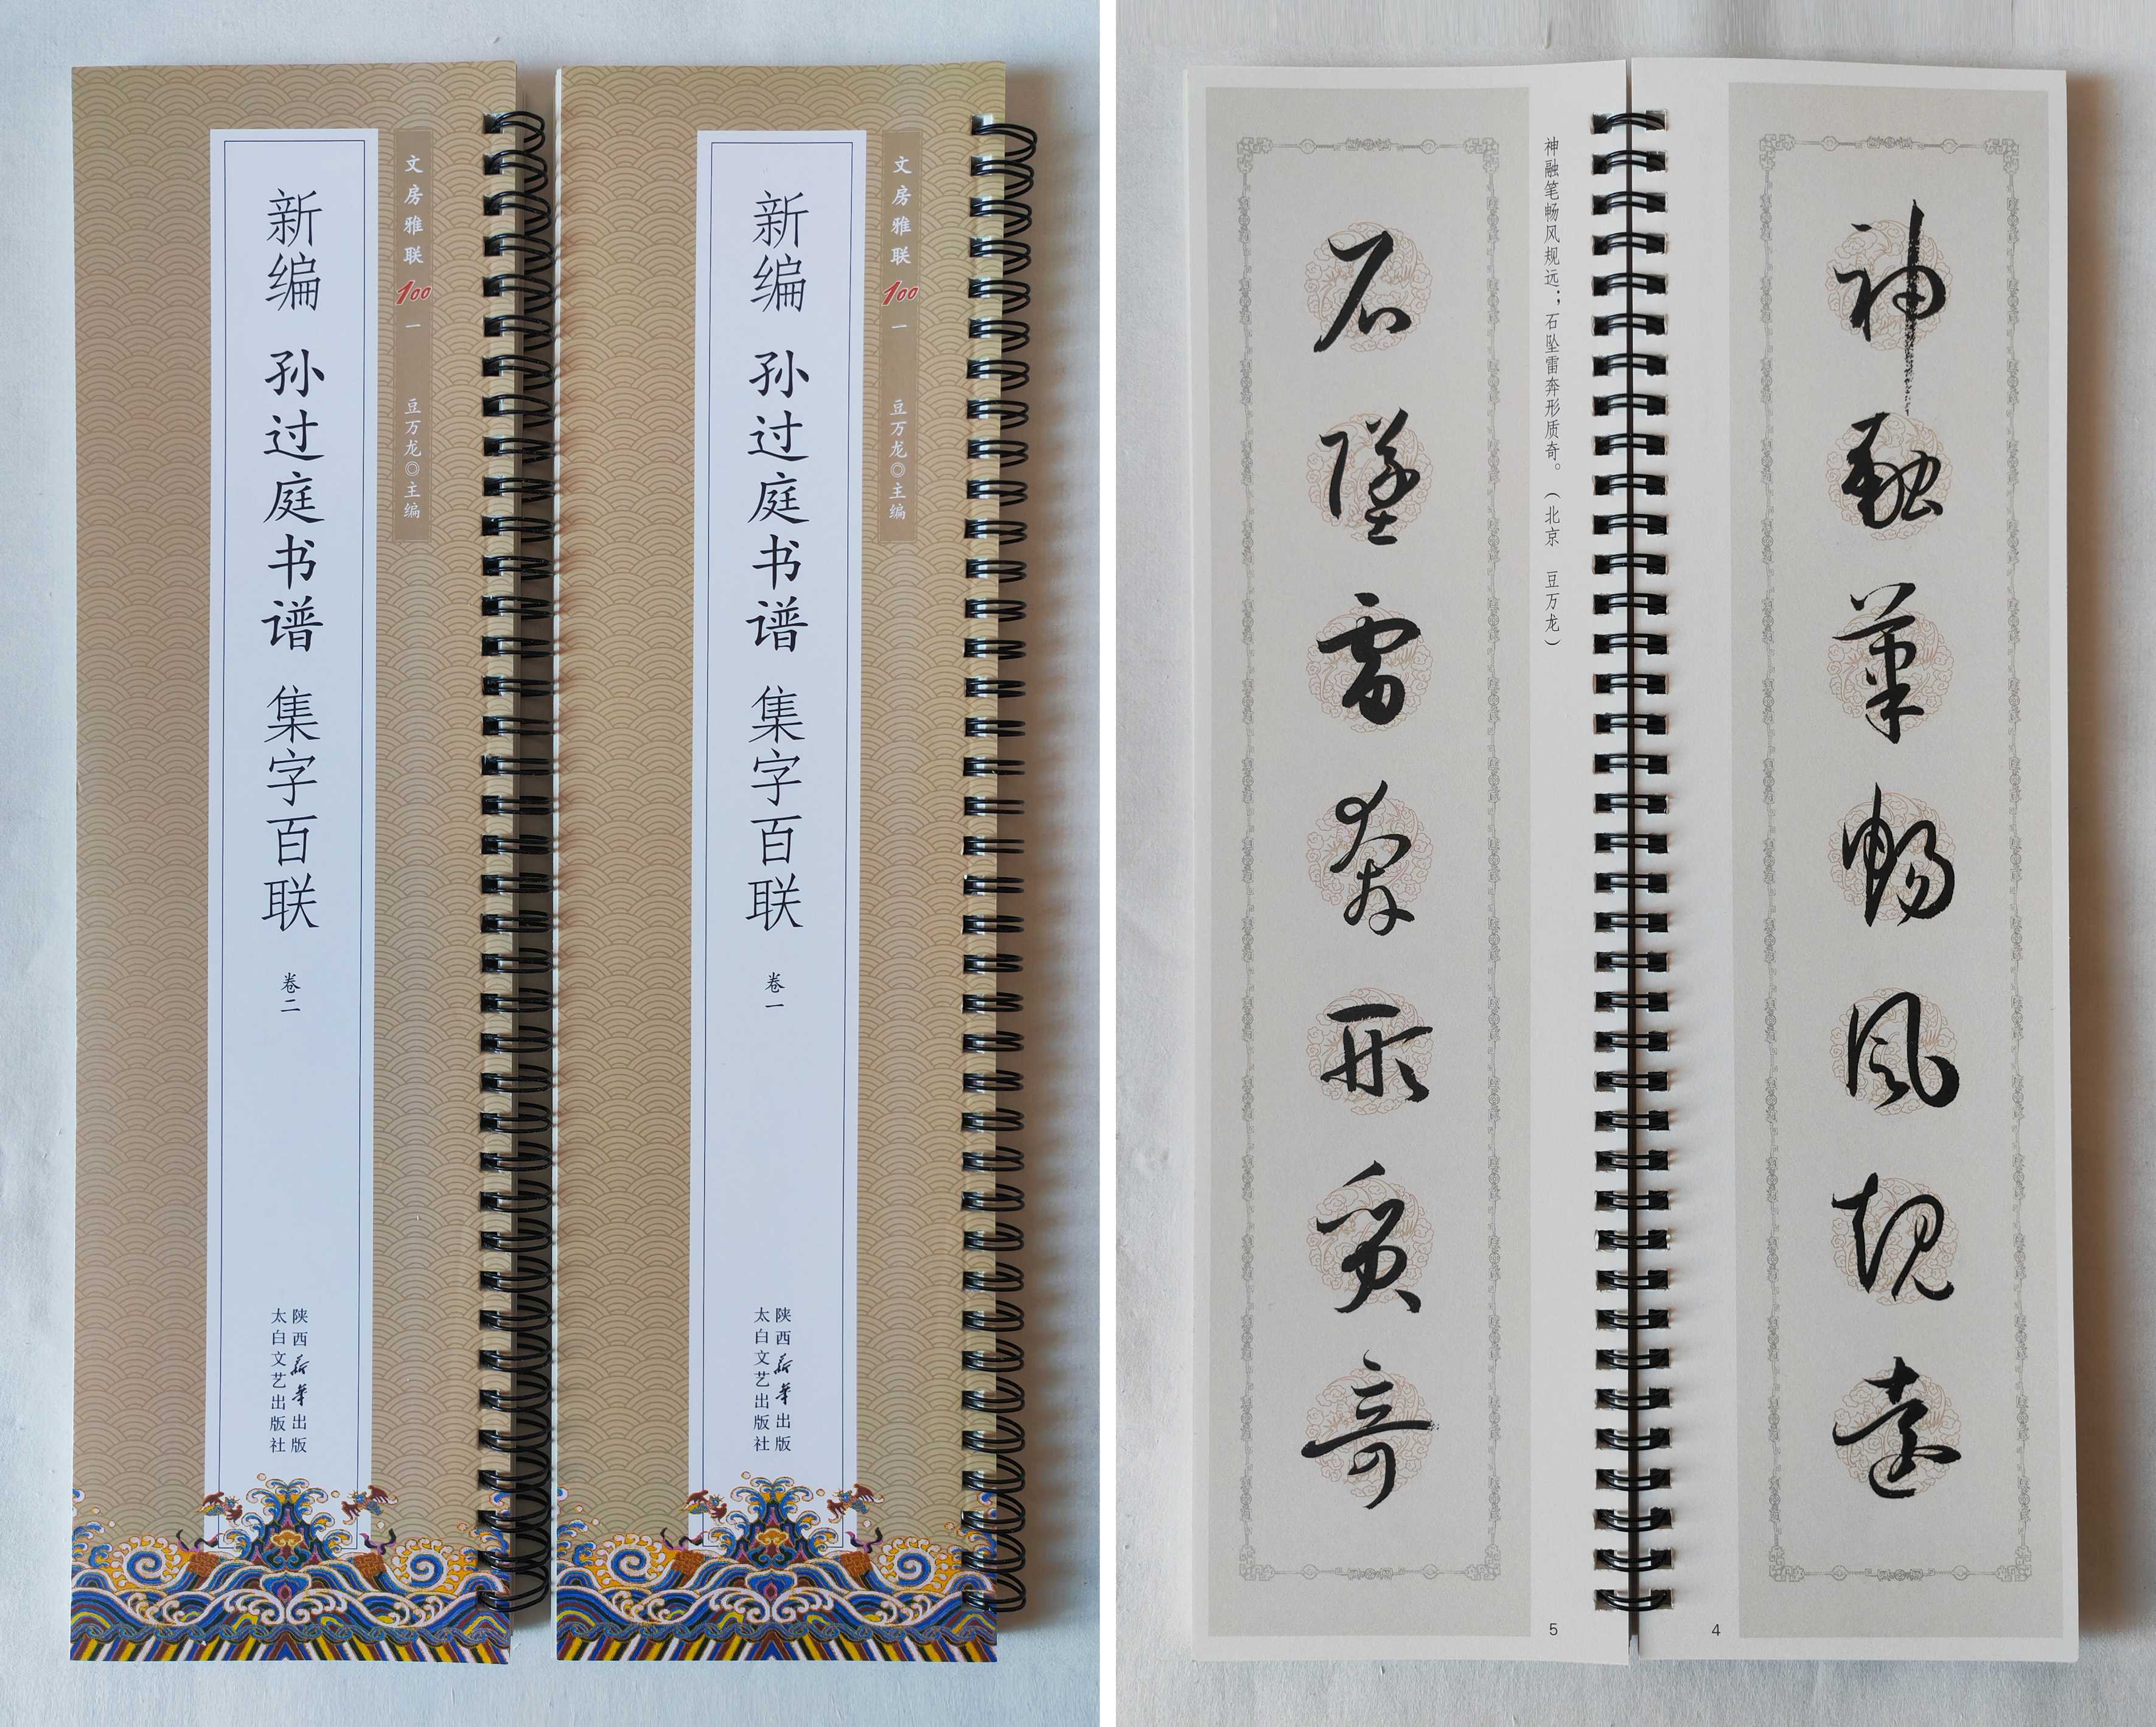 文房雅联100 一
豆万龙◎主编
新编 孙过庭书谱 集字百联 卷二
陕西新华出版
太白文艺出版社
文房雅联100 一
豆万龙◎主编
新编 孙过庭书谱 集字百联 卷一
陕西新华出版
太白文艺出版社
神融筆暢風規遠
4
神融笔畅风规远；石坠雷奔形质奇。（北京 豆万龙）
石墜雷奔形質奇
5